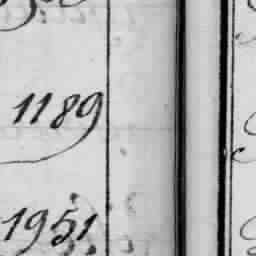 1189
1951